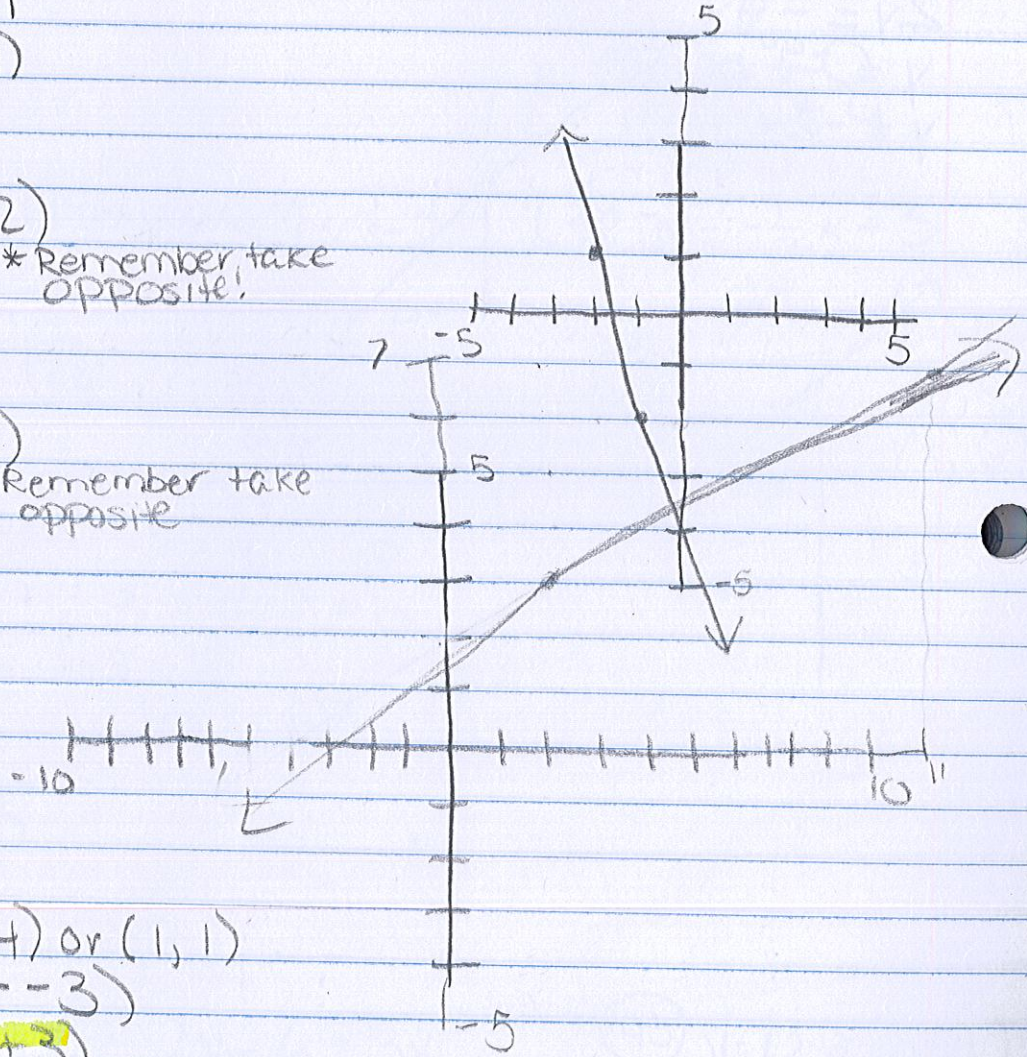 )
5
2)
* Remember, take
opposite!
-5
5
7
)
5
Remember take
opposite
-5
-10
10
11
4) or (1, 1)
--3)
-5